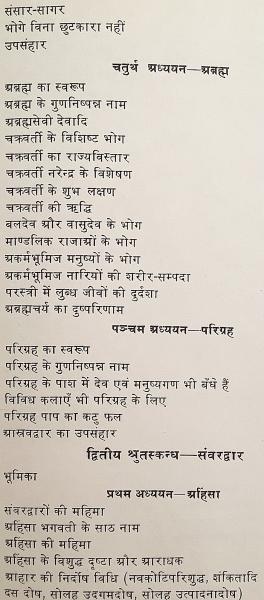 संसार-सागर
भोगे विना छुटकारा नहीं
उपसंहार
चतुर्थ अध्ययन—अब्रह्म
अब्रह्म का स्वरूप
अब्रह्म के गुणनिष्पन्न नाम
अब्रह्मसेवी देवादि
चक्रवर्ती के विशिष्ट भोग
चक्रवर्ती का राज्यविस्तार
चक्रवर्ती नरेन्द्र के विशेषण
चक्रवर्ती के शुभ लक्षण
चक्रवर्ती की ऋद्धि
बलदेव और वासुदेव के भोग
माण्डलिक राजाओं के भोग
अकर्मभूमिज मनुष्यों के भोग
अकर्मभूमिज नारियों की शरीर-सम्पदा
परस्त्री में लुब्ध जीवों की दुर्दशा
अब्रह्मचर्य का दुष्परिणाम
पञ्चम अध्ययन—परिग्रह
परिग्रह का स्वरूप
परिग्रह के गुणनिष्पन्न नाम
परिग्रह के पाश में देव एवं मनुष्यगण भी बँधे हैं
विविध कलाएँ भी परिग्रह के लिए
परिग्रह पाप का कटु फल
आस्रवद्वार का उपसंहार
द्वितीय श्रुतस्कन्ध—संवरद्वार
भूमिका
प्रथम अध्ययन—अहिंसा
संवरद्वारों की महिमा
अहिंसा भगवती के साठ नाम
अहिंसा की महिमा
अहिंसा के विशुद्ध दृष्टा और आराधक
आहार की निर्दोष विधि (नवकोटिपरिशुद्ध, शंकितादि
दस दोष, सोलह उद्गमदोष, सोलह उत्पादनादोष)